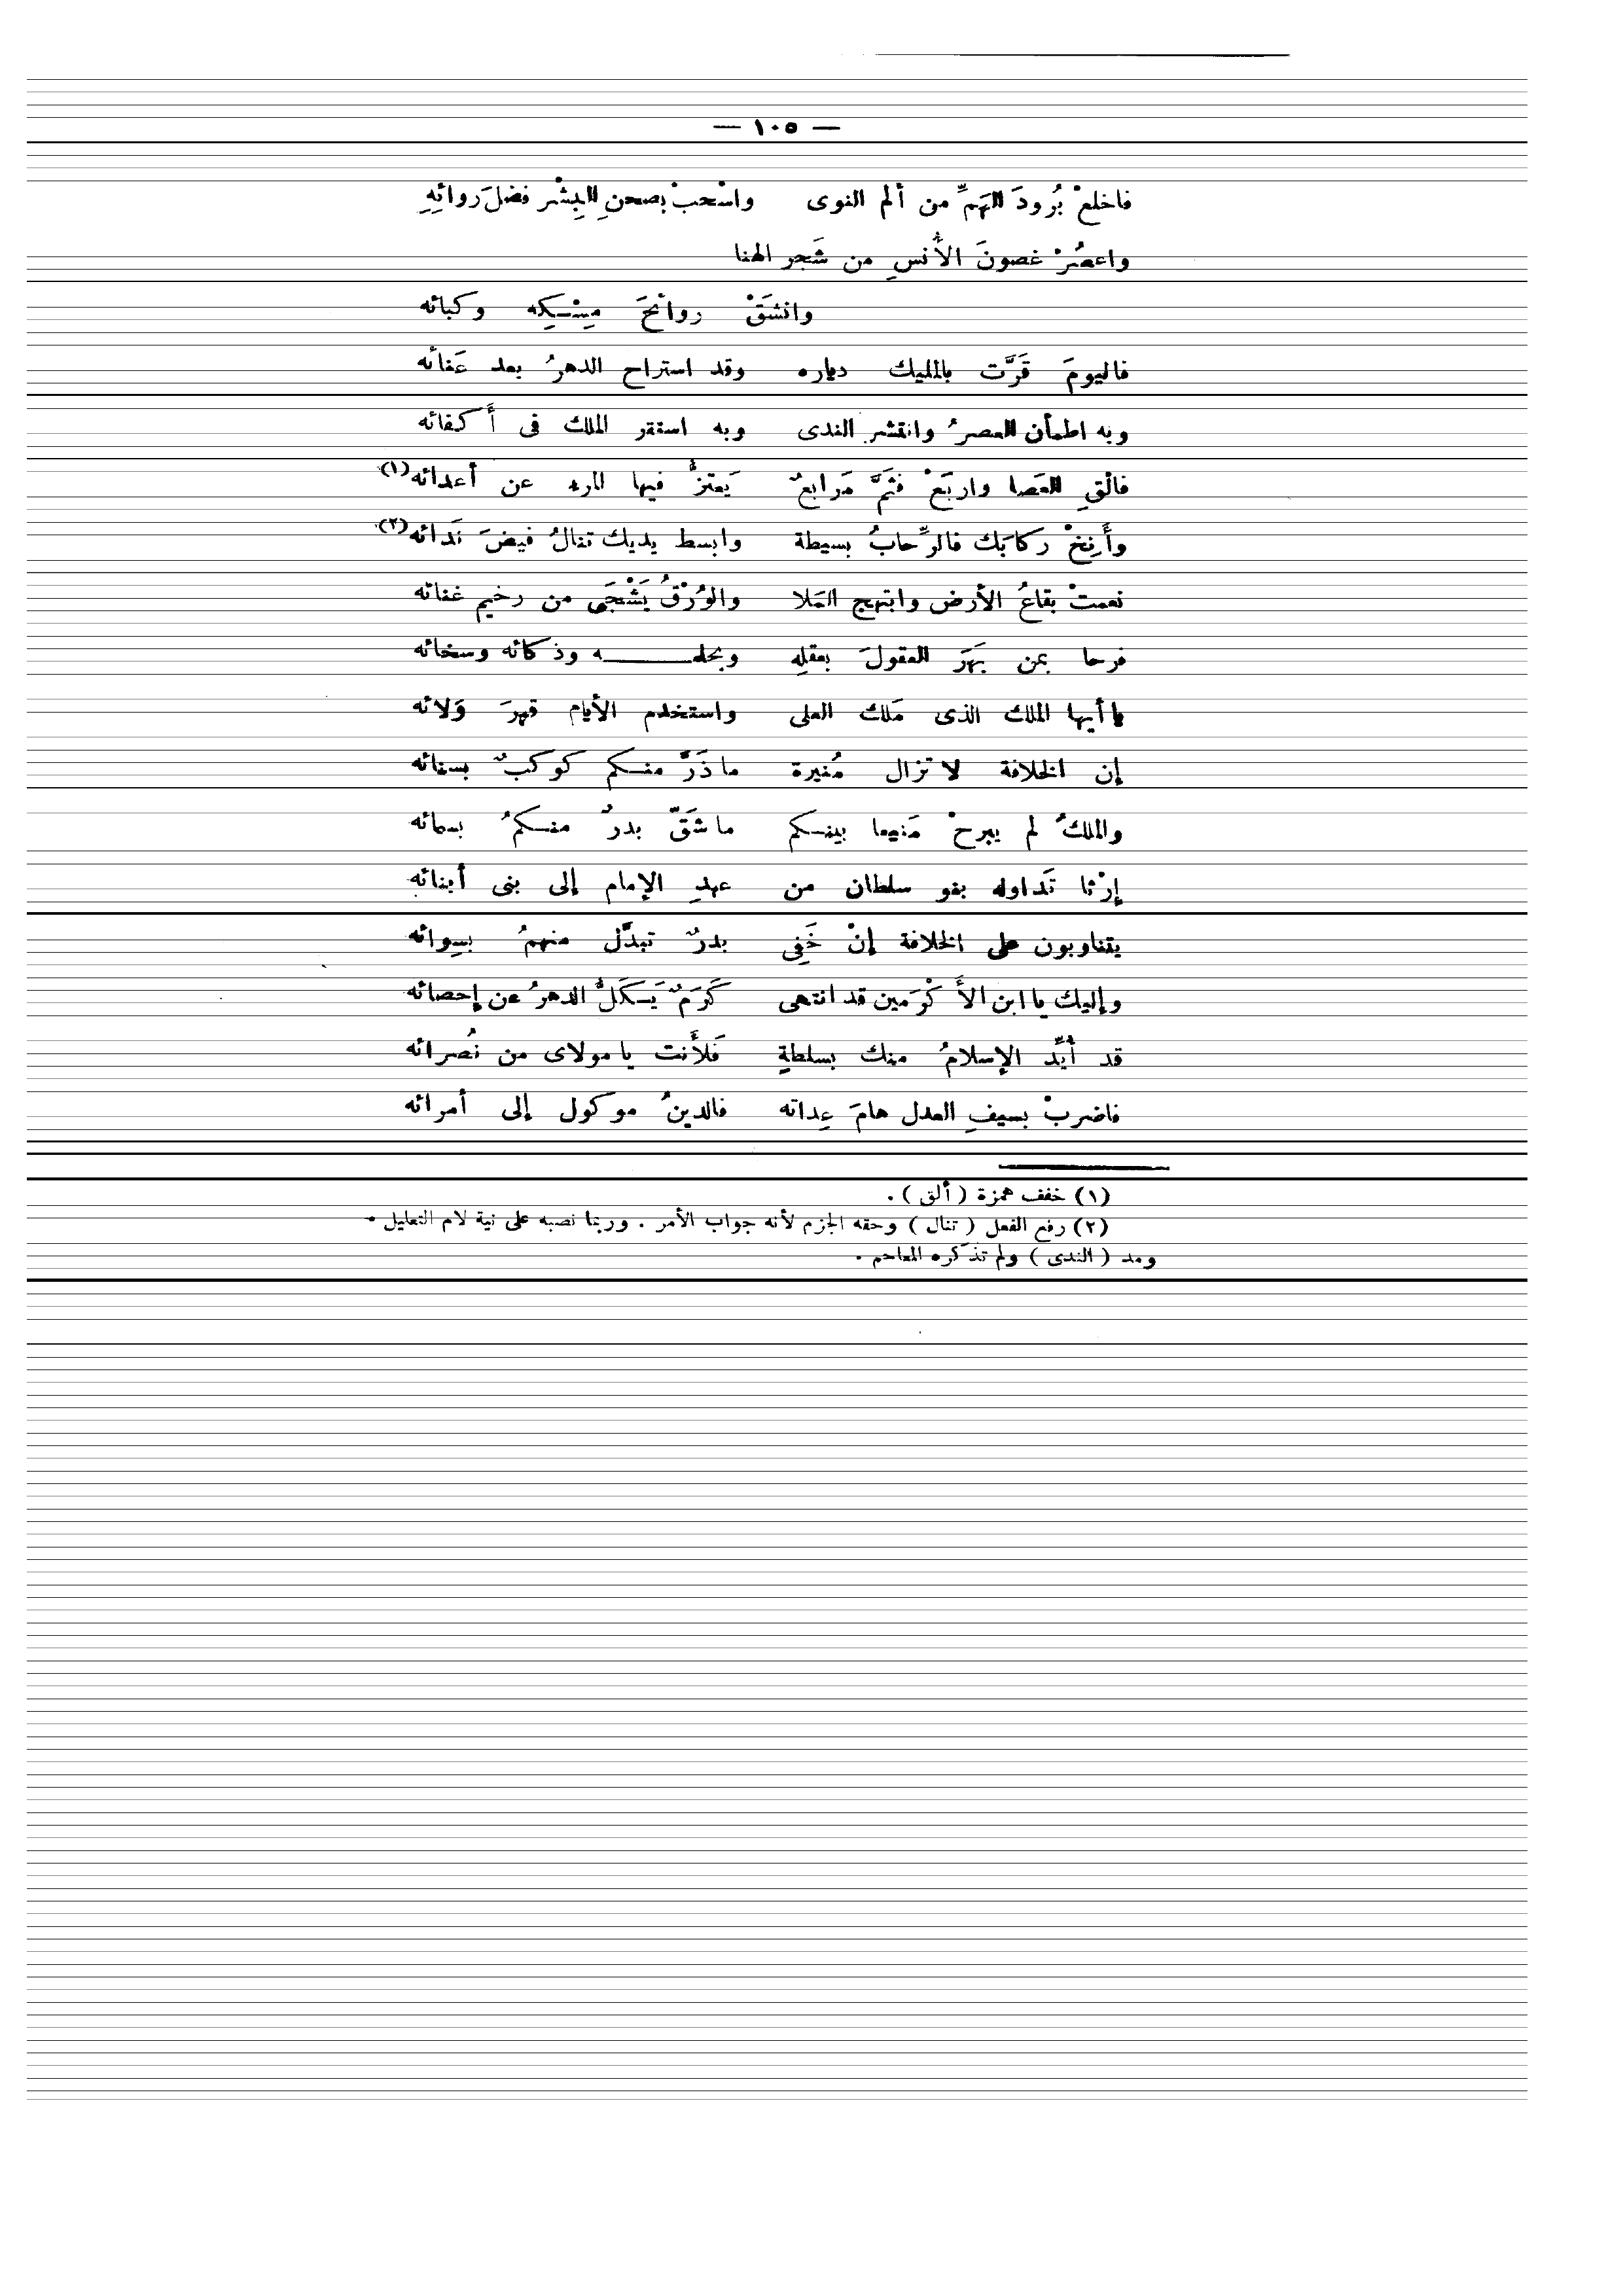 — ١٠٥ —
فاخلعْ بُرودَ الهَمِّ من ألم النوى واسْحبْ بصحنِ البِشْر فضلَ روائِهِ
واعصُرْ غصونَ الأُنسِ من شَجر الهنا
وانشَقْ روائحَ مِسْكِه وكبائه
فاليومَ قَرَّت بالمليك دياره وقد استراح الدهرُ بعد عَنائه
وبه اطمأن العصرُ وانتشر الندى وبه استقر الملك فى أَكفائه
فالْقِ العَصا واربَعْ فثَمَّ مَرابعٌ يَعتزُّ فيها المرء عن أعدائه(١)
وأَنِخْ ركابَك فالرِّحابُ بسيطة وابسط يديك تنالُ فيضَ نَدائه(٢)
نعمتْ بقاعُ الأرض وابتهج المَلا والوُرْقُ يَشْجَى من رخيم غنائه
فرحا بمن بَهَرَ العقولَ بعقلِه وبحلمـــه وذكائه وسخائه
يا أيها الملك الذى مَلك العلى واستخدم الأيام قهرَ وَلائه
إن الخلافة لا تزال مُنيرة ما ذَرَّ منكم كوكبٌ بسنائه
والملكُ لم يبرحْ مَنيعا بينكم ما شَقَّ بدرٌ منكمُ بسمائه
إرْثا تَداوله بنو سلطان من عهدِ الإمام إلى بنى أبنائه
يتناوبون على الخلافة إنْ خَفِى بدرٌ تبدَّل منهمُ بسِوائه
وإليك يا ابن الأَكْرَمين قد انتهى كَرَمٌ يَكَلُّ الدهرُ عن إحصائه
قد أُيِّد الإسلامُ منك بسلطةٍ فَلأَنت يا مولاى من نُصرائه
فاضربْ بسيفِ العدل هامَ عِداته فالدينُ موكول إلى أمرائه
(١) خفف همزة ( ألق ) .
(٢) رفع الفعل ( تنال ) وحقه الجزم لأنه جواب الأمر . وربما نصبه على نية لام التعليل .
ومد ( الندى ) ولم تذكره المعاجم .